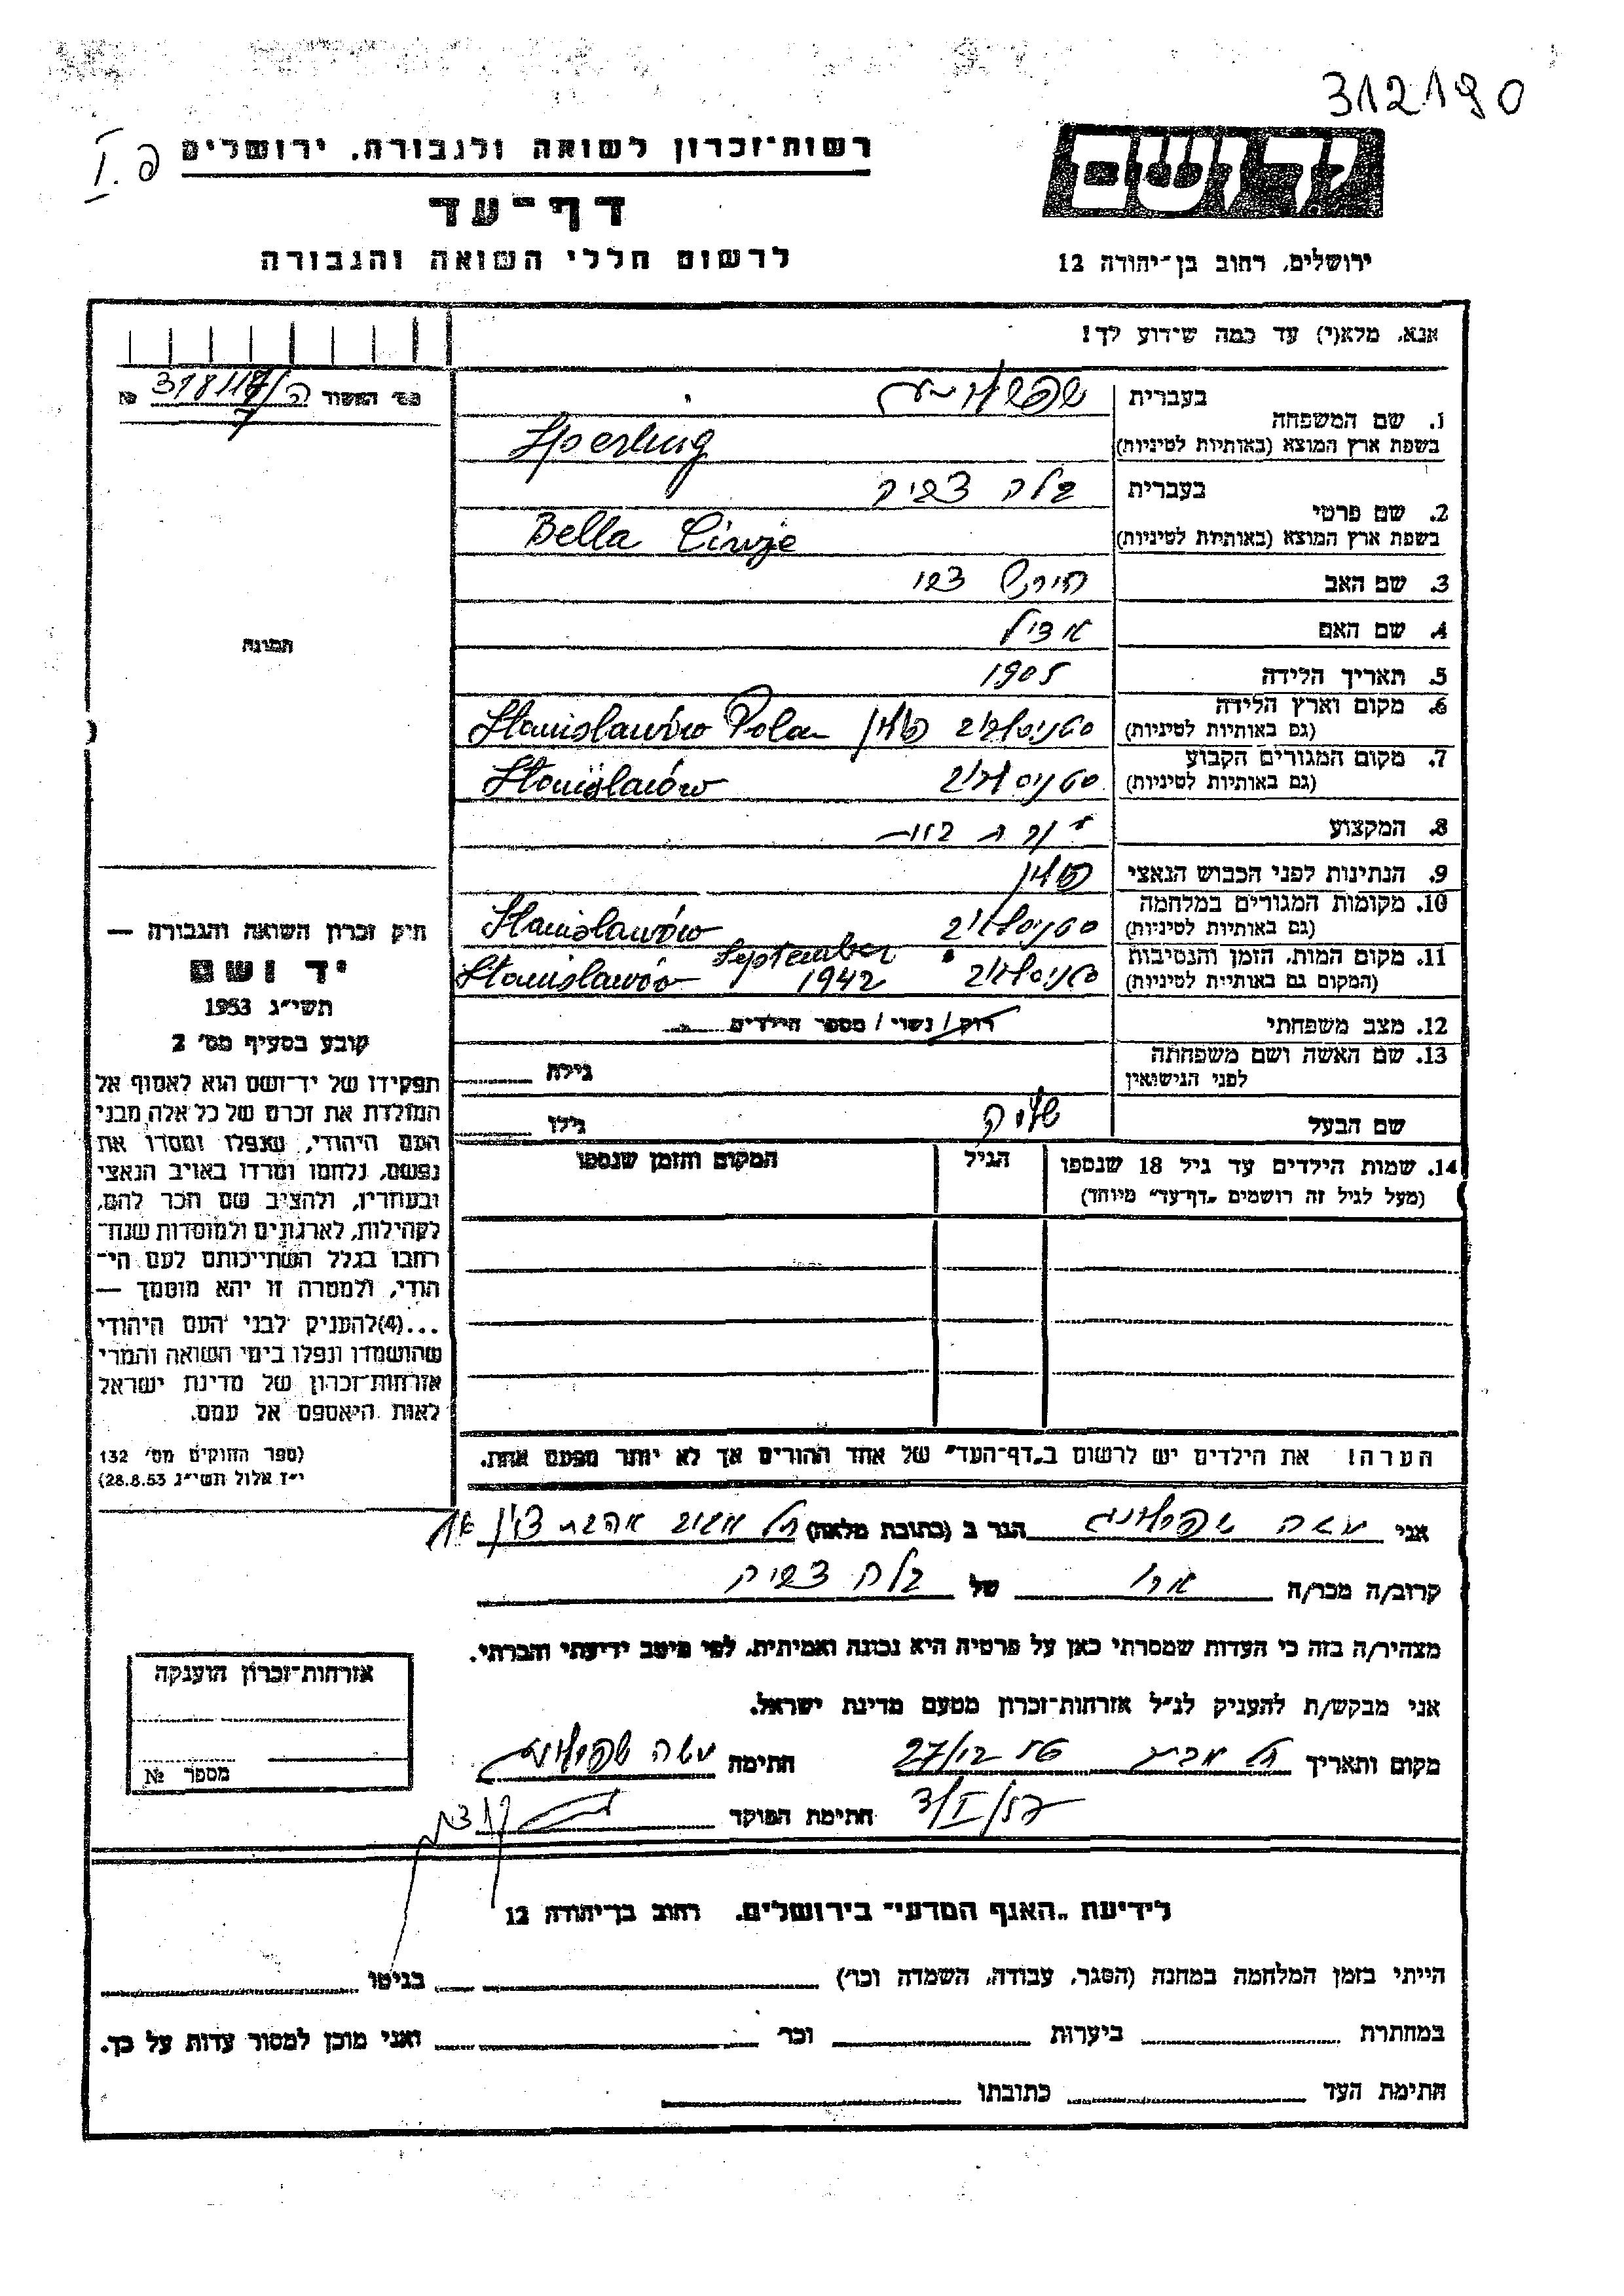 312190
רשות־זכרון לשואה ולגבורה, ירושלים
פ. I
דף־עד
לרשום חללי השואה והגבורה
יד ושם
ירושלים, רחוב בן־יהודה 12
אנא, מלא(י) עד כמה שידוע לך!
318117
1. שם המשפחה
בעברית
שפרלינג
בשפת ארץ המוצא (באותיות לטיניות)
Sperling
2. שם פרטי
בעברית
בלה צביה
בשפת ארץ המוצא (באותיות לטיניות)
Bella
3. שם האב
הירש צבי
4. שם האם
אדיל
5. תאריך הלידה
1905
6. מקום וארץ הלידה
(גם באותיות לטיניות)
סטניסלבוב פולין Stanisławów Polen
7. מקום המגורים הקבוע
(גם באותיות לטיניות)
סטניסלבוב Stanisławów
8. המקצוע
עקרת בית
9. הנתינות לפני הכבוש הנאצי
פולין
10. מקומות המגורים במלחמה
(גם באותיות לטיניות)
סטניסלבוב Stanisławów
11. מקום המות, הזמן והנסיבות
(המקום גם באותיות לטיניות)
סטניסלבוב September 1942 Stanisławów
12. מצב משפחתי
רוק / נשוי / מספר הילדים
13. שם האשה ושם משפחתה
לפני הנישואין
גילה
שם הבעל
גילו
14. שמות הילדים עד גיל 18 שנספו
(מעל לגיל זה רושמים „דף־עד" מיוחד)
הגיל
המקום והזמן שנספו
הערה! את הילדים יש לרשום ב„דף־העד" של אחד ההורים אך לא יותר מפעם אחת.
תמונה
חיק זכרון השואה והגבורה —
יד ושם
תשי״ג 1953
קובע בסעיף מס׳ 2
תפקידו של יד־ושם הוא לאסוף אל
המולדת את זכרם של כל אלה מבני
העם היהודי, שנפלו ומסרו את
נפשם, נלחמו ומרדו באויב הנאצי
ובעוזריו, ולהציב שם וזכר להם,
לקהילות, לארגונים ולמוסדות שנח־
רחבו בגלל השתייכותם לעם הי־
הודי, ולמטרה זו יהא מוסמך —
...(4)להעניק לבני העם היהודי
שהושמדו ונפלו בימי השואה והמרי
אזרחות־זכרון של מדינת ישראל
לאות היאספם אל עמם.
(ספר החוקים מס׳ 132
י״ז אלול תשי״ג 28.8.53)
אני משה שפרלינג הגר ב (כתובת מלאה) תל אביב אהבת ציון
קרוב/ה מכר/ה אח של בלה צביה
מצהיר/ה בזה כי העדות שמסרתי כאן על פרטיה היא נכונה ואמיתית, לפי מיטב ידיעתי והכרתי.
אני מבקש/ת להעניק לנ״ל אזרחות־זכרון מטעם מדינת ישראל.
מקום ותאריך תל אביב חתימה משה שפרלינג
חתימת הפוקד
אזרחות־זכרון הוענקה
מספר №
לידיעת „האגף המדעי" בירושלים, רחוב בן־יהודה 12
הייתי בזמן המלחמה במחנה (הסגר, עבודה, השמדה וכו׳) בגיטו
במחתרת ביערות וכו׳ ואני מוכן למסור עדות על כך.
חתימת העד כתובתו